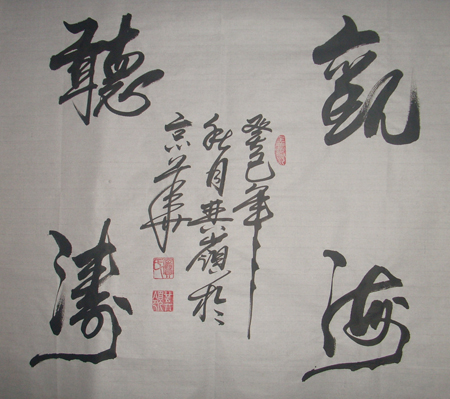 觀海
聽濤
癸巳年
秋月嶺於
京華